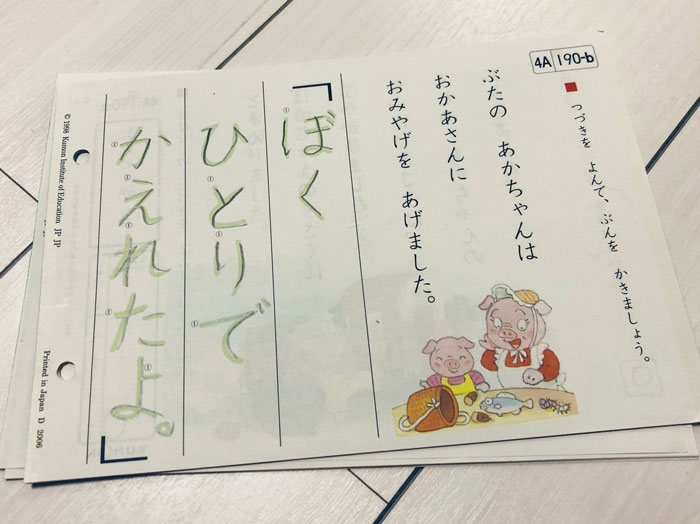 4A 190-b
つづきを よんで、ぶんを かきましょう。
ぶたの あかちゃんは
おかあさんに
おみやげを あげました。
「ぼく
ひとりで
かえれたよ。」
© 1998 Kumon Institute of Education JP JP
Printed in Japan D 2006